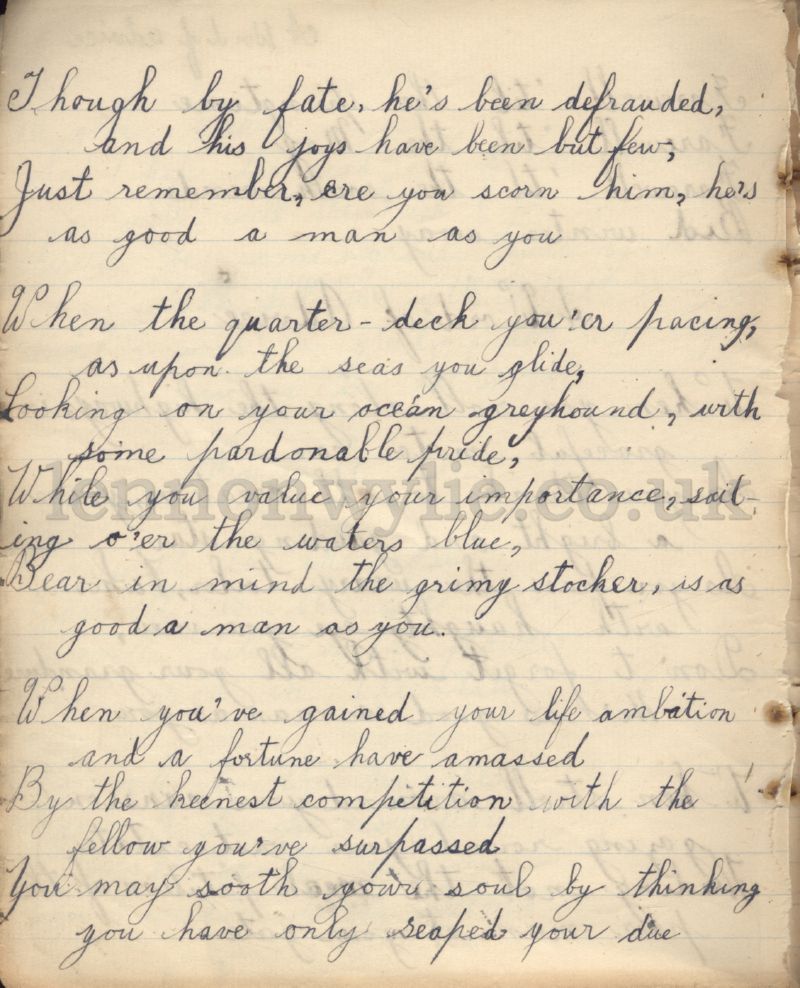 Though by fate, he's been defrauded,
and his joys have been but few,
Just remember, ere you scorn him, he's
as good a man as you
When the quarter-deck you'er pacing,
as upon. the seas you glide,
Looking on your ocean greyhound, with
some pardonable pride,
While you value your importance, sail-
ing o'er the waters blue,
Bear in mind the grimy stocker, is as
good a man as you.
When you've gained your life ambition
and a fortune have amassed
By the keenest competition with the
fellow you've surpassed
You may sooth your soul by thinking
you have only reaped your due
lennonwylie.co.uk